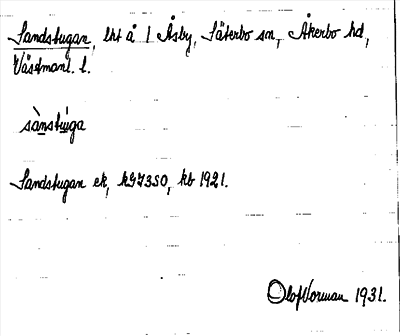 Sandstugan, lht å 1 Åsby, Säterbo sn, Åkerbo hd,
Västmanl. l.
sànstúga
Sandstugan ek, kG7350, kb 1921.
Olof Vorman 1931.